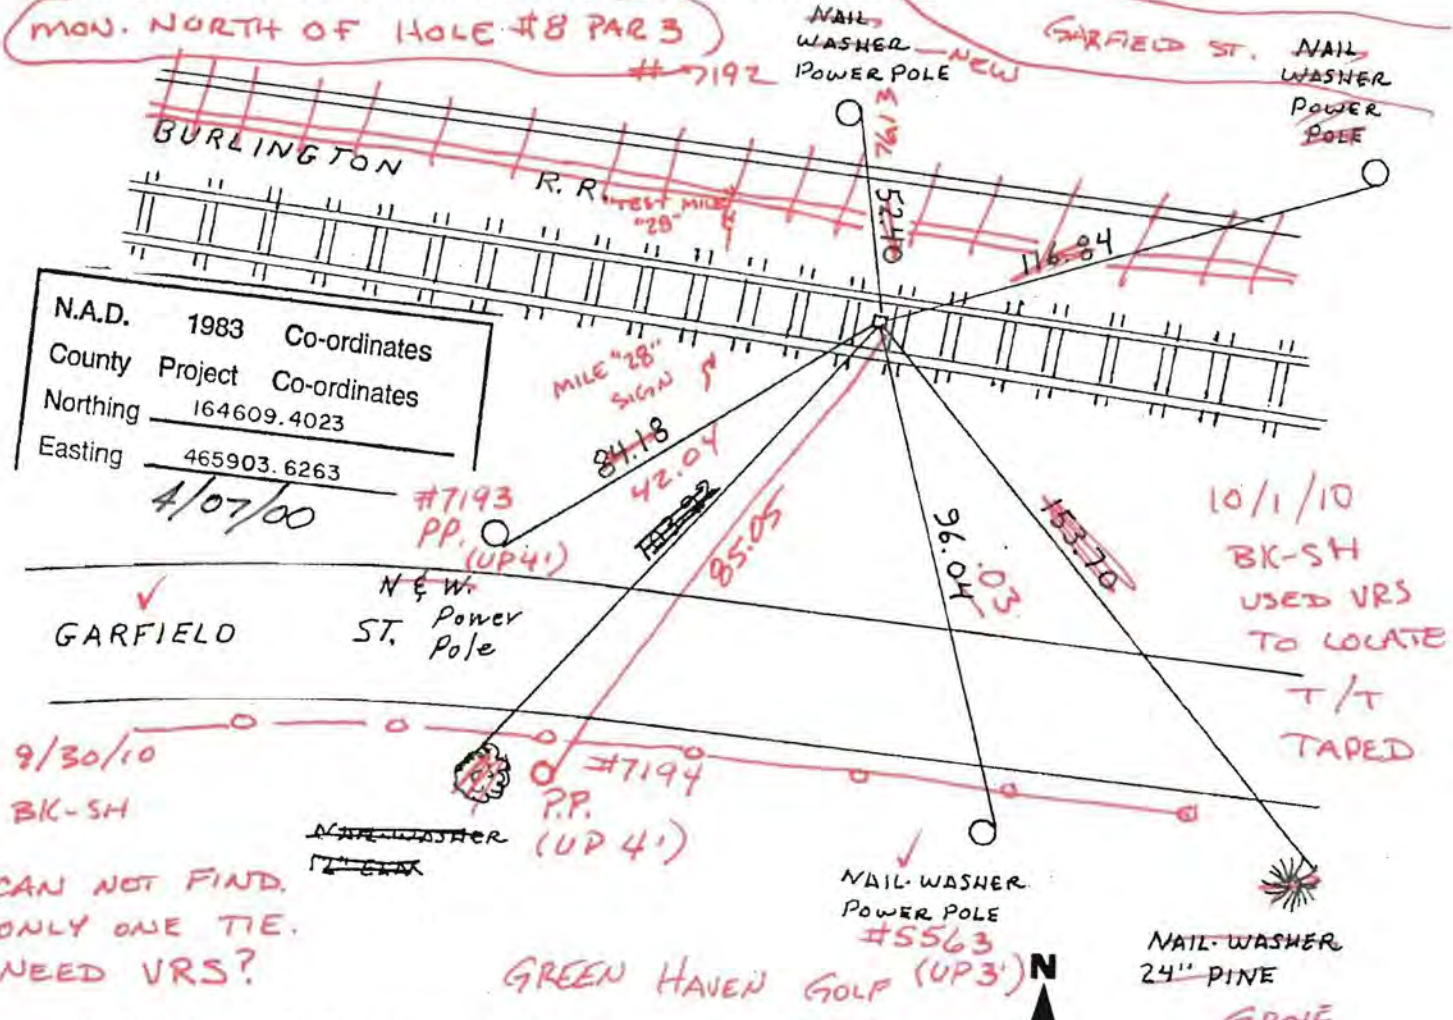 MON. NORTH OF HOLE #8 PAR 3
#7192
NAIL
WASHER
POWER POLE
NEW
GARFIELD ST.
NAIL
WASHER
POWER
POLE
7613
BURLINGTON
R.R.
TEST MILE
"28"
52.40
116.84
N.A.D. 1983 Co-ordinates
County Project Co-ordinates
Northing 164609.4023
Easting 465903.6263
4/07/00
MILE "28"
SIGN
84.18
42.04
#7193
PP.
(UP 4')
85.05
96.04
.03
153.70
10/1/10
BK-SH
USED VRS
TO LOCATE
T/T
TAPED
N & W.
Power
Pole
GARFIELD ST.
9/30/10
BK-SH
CAN NOT FIND.
ONLY ONE TIE.
NEED VRS?
NAIL-WASHER
#7194
P.P.
(UP 4')
NAIL-WASHER
POWER POLE
#5563
(UP 3')
NAIL-WASHER
24" PINE
GREEN HAVEN GOLF
N